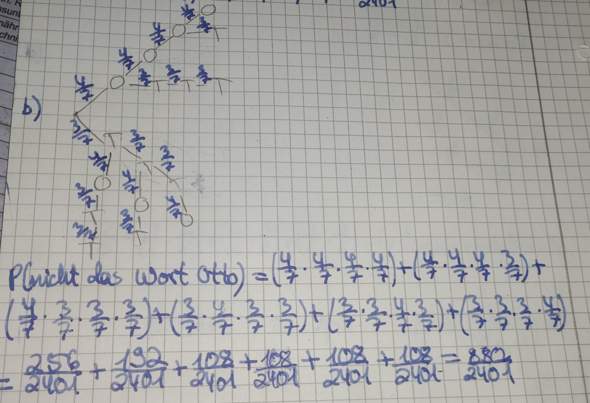 2401
4/7 3/7
4/7
4/7 3/7 3/7 3/7
4/7
b)
3/7 3/7 3/7
4/7 4/7 4/7
3/7 3/7
3/7
P(nicht das Wort Otto) = (4/7 · 4/7 · 4/7 · 4/7) + (4/7 · 4/7 · 4/7 · 3/7) +
(4/7 · 3/7 · 3/7 · 3/7) + (3/7 · 4/7 · 3/7 · 3/7) + (3/7 · 3/7 · 4/7 · 3/7) + (3/7 · 3/7 · 3/7 · 4/7)
= 256/2401 + 192/2401 + 108/2401 + 108/2401 + 108/2401 + 108/2401 = 880/2401